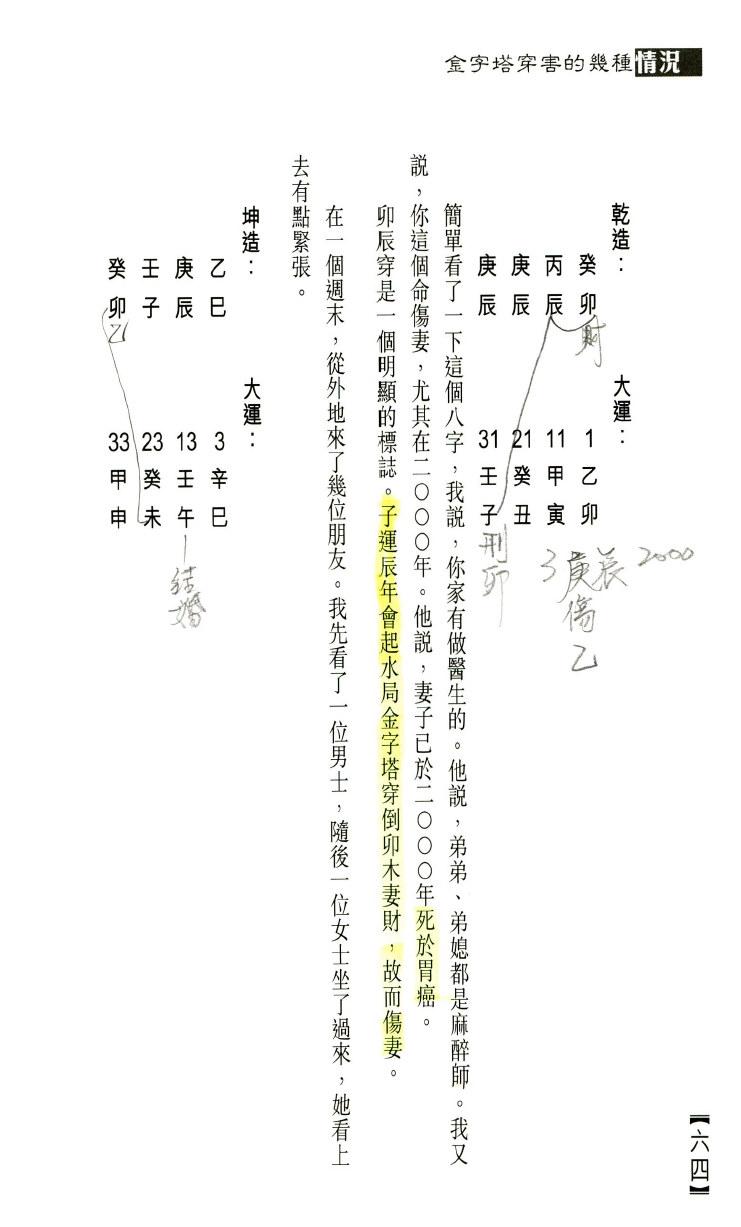 金字塔穿害的幾種情況
乾造： 大運：
癸卯 財 1 乙卯
丙辰 11 甲寅
庚辰 21 癸丑
庚辰 31 壬子
刑卯
庚辰 2000
傷
乙
簡單看了一下這個八字，我說，你家有做醫生的。他說，弟弟、弟媳都是麻醉師。我又
說，你這個命傷妻，尤其在二〇〇〇年。他說，妻子已於二〇〇〇年死於胃癌。
卯辰穿是一個明顯的標誌。子運辰年會起水局金字塔穿倒卯木妻財，故而傷妻。
在一個週末，從外地來了幾位朋友。我先看了一位男士，隨後一位女士坐了過來，她看上
去有點緊張。
坤造： 大運：
乙巳 3 辛巳
庚辰 13 壬午 結婚
壬子 23 癸未
癸卯 乙 33 甲申
【六四】